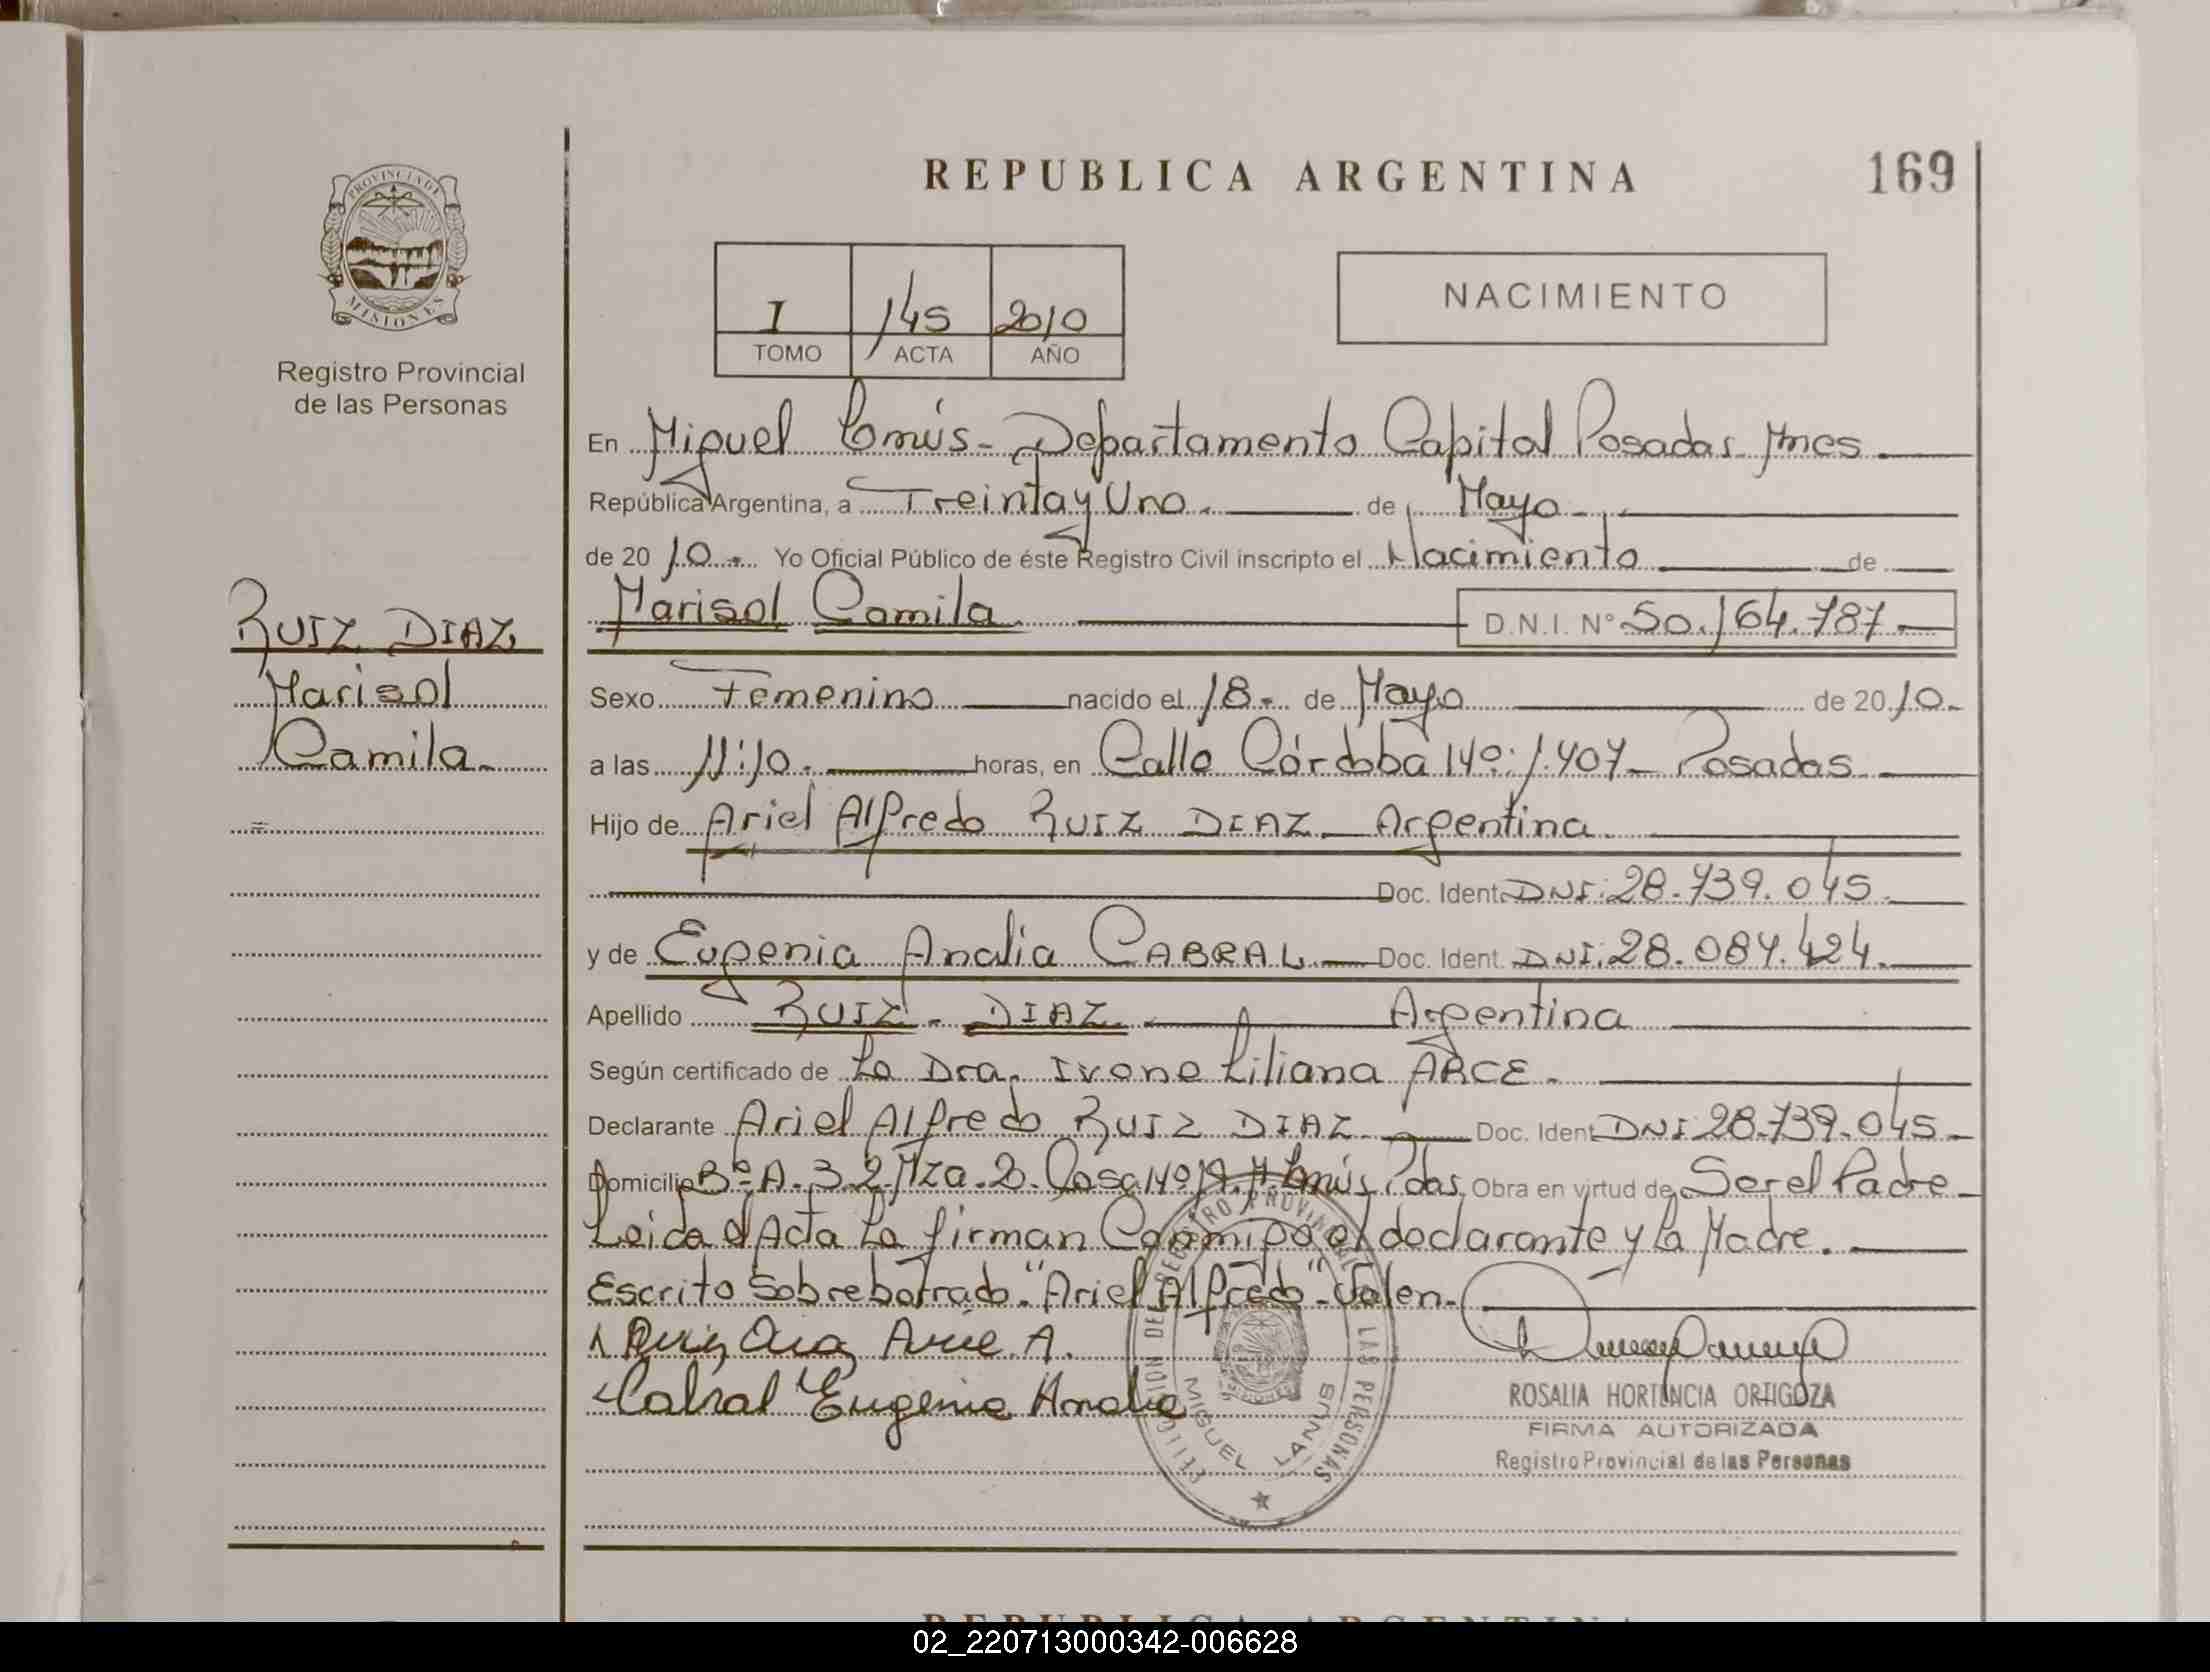 REPUBLICA ARGENTINA
169
PROVINCIA DE
MISIONES
Registro Provincial
de las Personas
I 145 2010
TOMO ACTA AÑO
NACIMIENTO
En Miguel Lanús - Departamento Capital Posadas Mnes
República Argentina, a Treinta y Uno. de Mayo
de 2010. Yo Oficial Público de éste Registro Civil inscripto el Nacimiento de
RUIZ DIAZ
Marisol
Camila
Marisol Camila D.N.I. N° 50.164.787
Sexo Femenino nacido el 18 de Mayo de 2010
a las 11:10. horas, en Calle Córdoba Nº: 1.407 - Posadas
Hijo de Ariel Alfredo RUIZ DIAZ - Argentina
Doc. Ident. DNI: 28.739.045
y de Eugenia Analia CABRAL Doc. Ident. DNI: 28.084.424
Apellido RUIZ - DIAZ Argentina
Según certificado de La Dra. Ivone Liliana ARCE.
Declarante Ariel Alfredo RUIZ DIAZ Doc. Ident. DNI: 28.739.045
Domicilio Bº A. 3.2. Mza. 2. Casa Nº 19. M. Lanús Pdas Obra en virtud de Ser el Padre
Leida el Acta La firman Conmigo el declarante y la Madre.
Escrito Sobreborrado "Ariel Alfredo" - Valen.
Ruiz Diaz Ariel A.
Cabral Eugenia Analia
DEL REGISTRO PROVINCIAL DE LAS PERSONAS
MIGUEL LANUS
ROSALIA HORTENCIA ORTIGOZA
FIRMA AUTORIZADA
Registro Provincial de las Personas
REPUBLICA ARGENTINA
02_220713000342-006628